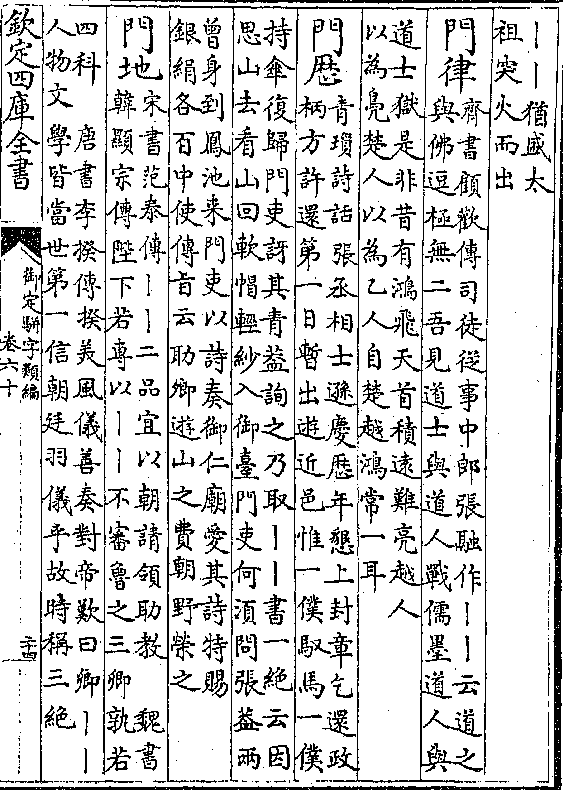 丨丨猶盛太
祖突火而出
門律齊書顧歡傳司徒從事中郎張融作丨丨云道之
與佛逗極無二吾見道士與道人戰儒墨道人與
道士獄是非昔有鴻飛天首積遠難亮越人
以為鳧楚人以為乙人自楚越鴻常一耳
門歴青瑣詩話張丞相士遜慶歴年懇上封章乞還政
柄方許還第一日暫出遊近邑惟一僕馭馬一僕
持傘復歸門吏訝其青葢詢之乃取丨丨書一絶云因
思山去看山回軟帽輕紗入御臺門吏何須問張葢兩
曾身到鳳池来門吏以詩奏御仁廟愛其詩特賜
銀絹各百中使傳旨云助卿遊山之費朝野榮之
門地宋書范泰傳丨丨二品宜以朝請領助教 魏書
韓顯宗傳陛下若專以丨丨不審魯之三卿孰若
四科 唐書李揆傳揆美風儀善奏對帝歎曰卿丨丨
人物文學皆當世第一信朝廷羽儀乎故時稱三絶
欽定四庫全書
御定駢字類編
卷六十
二十四